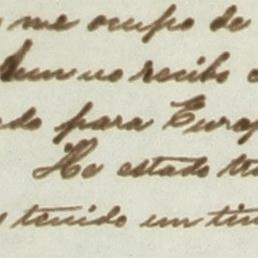 me ocupo de
aun no recibo
para Europ
He estado tr
tenido un tin